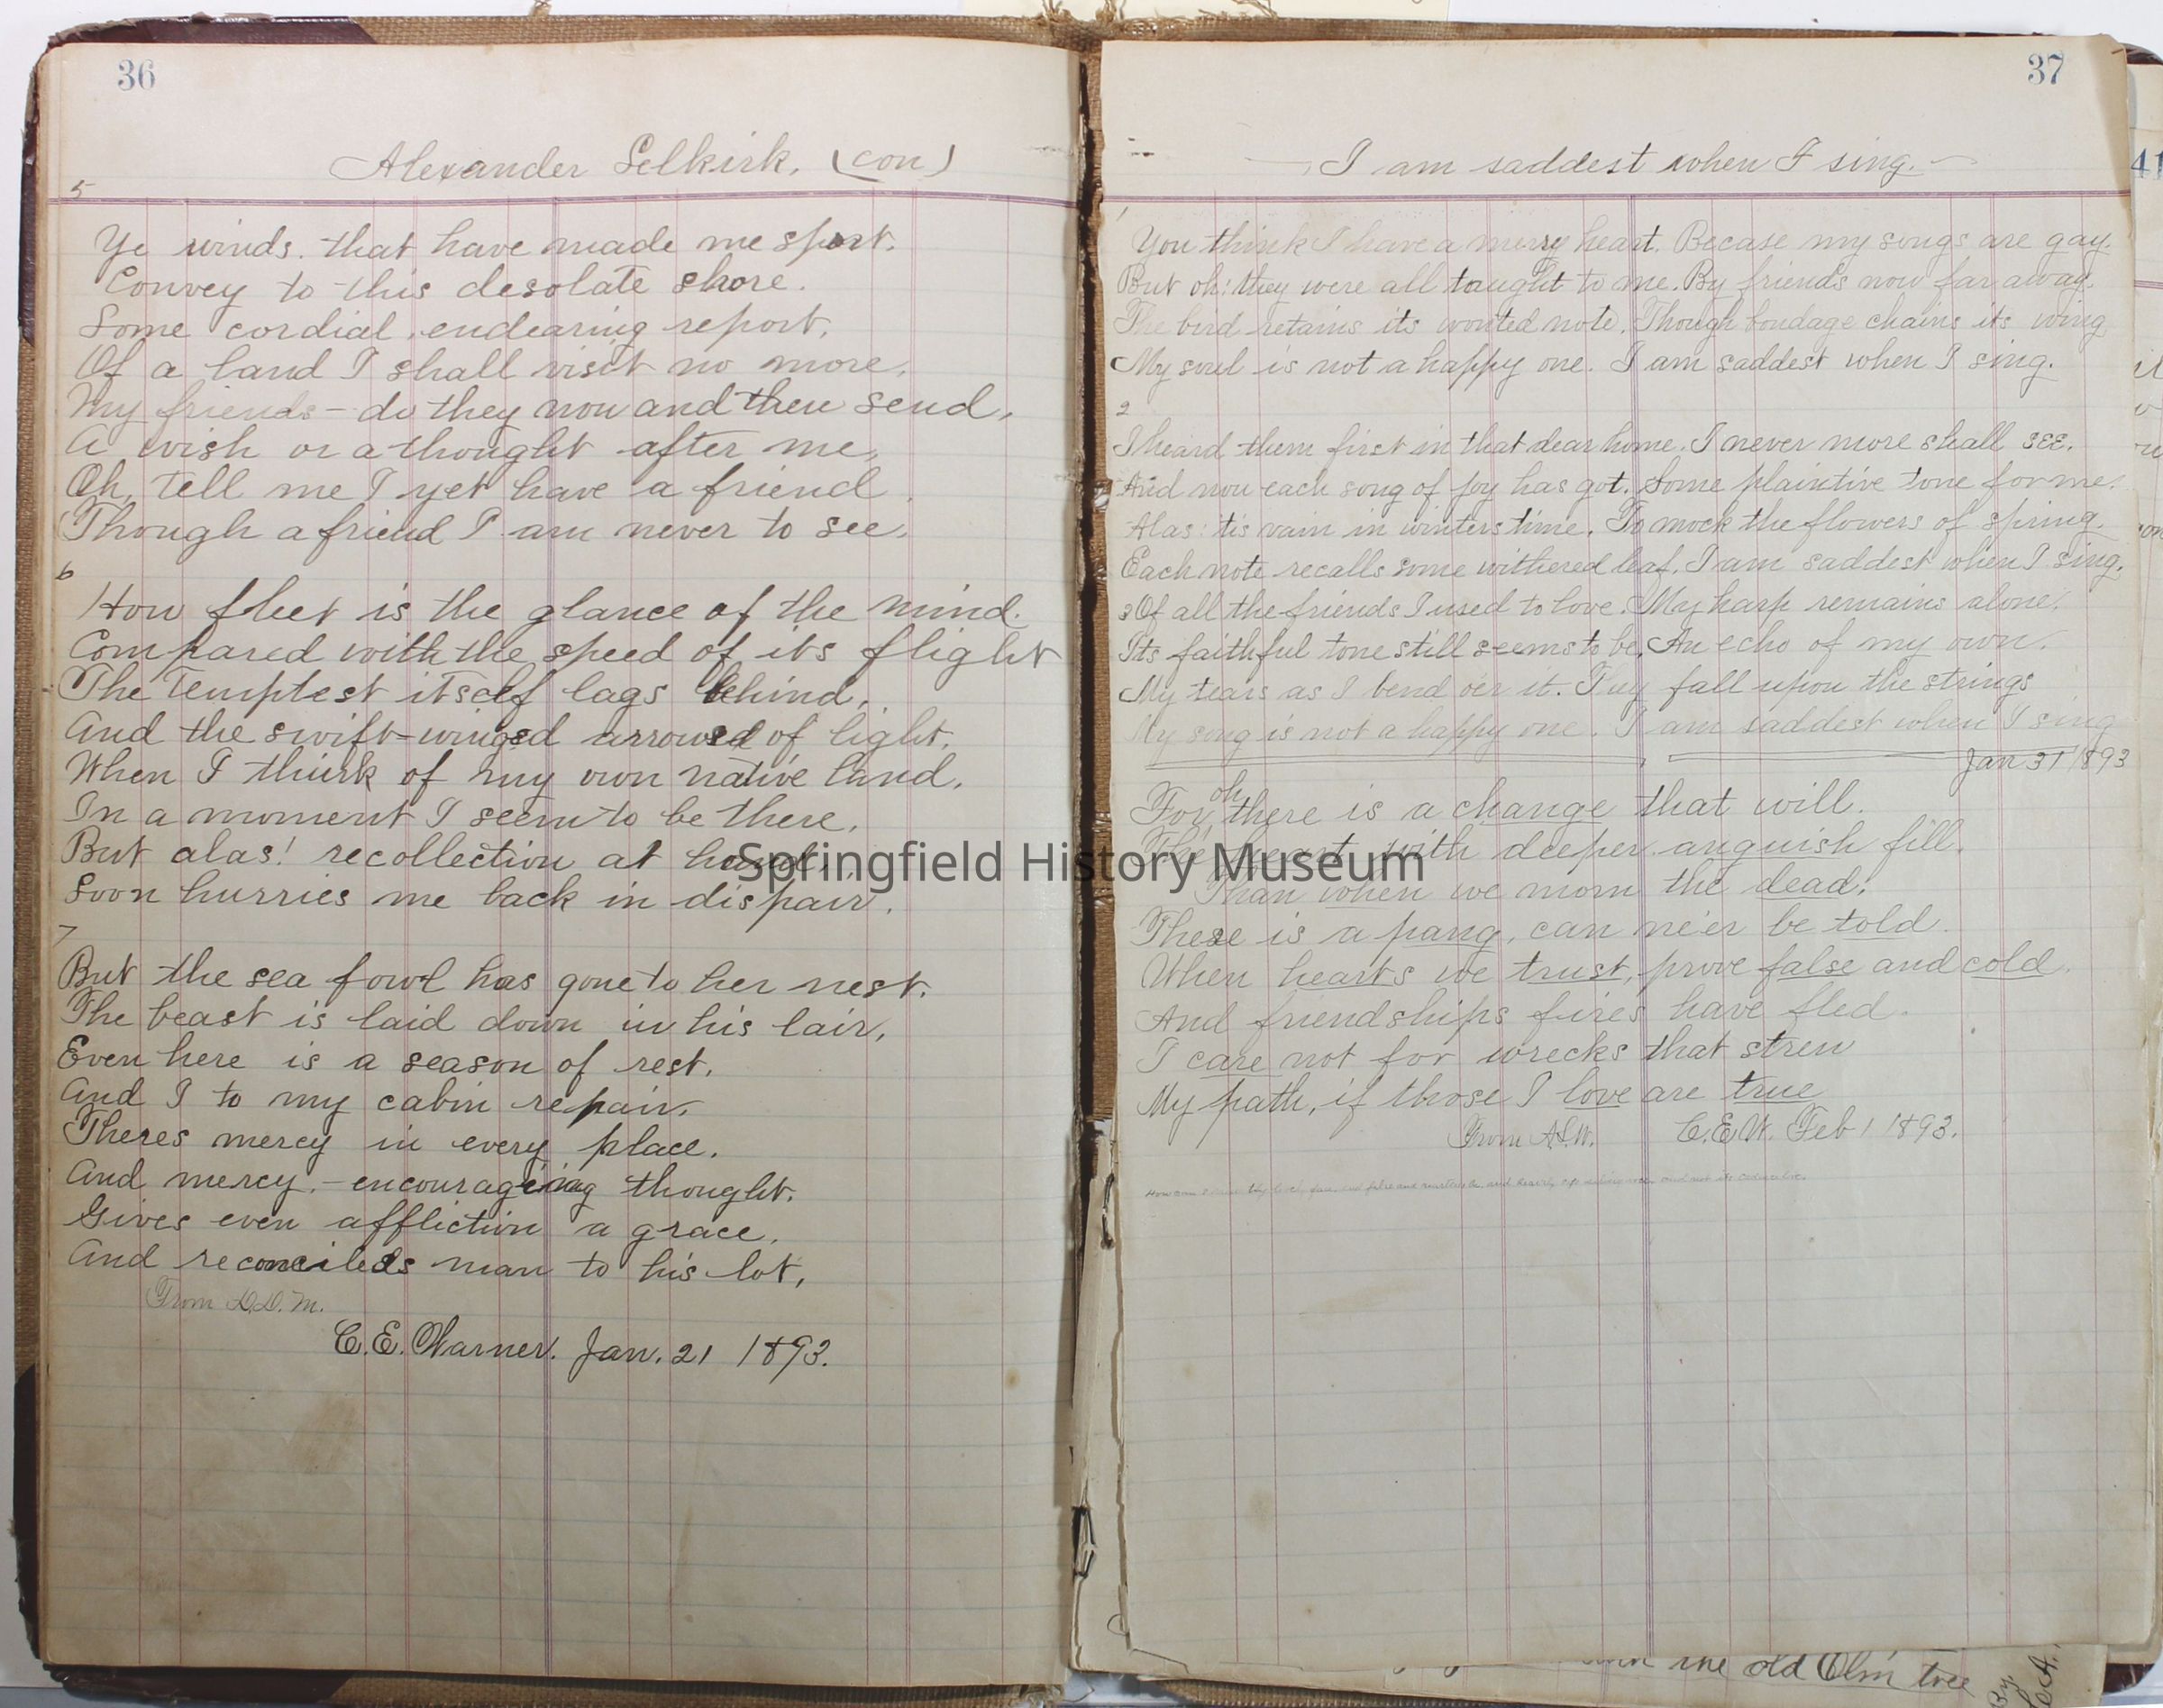 36
Alexander Selkirk. (con)
5
Ye winds. that have made me sport.
Convey to this desolate shore.
Some cordial, endearing report.
Of a land I shall visit no more.
My friends - do they now and then send.
A wish or a thought after me,
Oh, tell me I yet have a friend.
Though a friend I am never to see.
6
How fleet is the glance of the mind.
Compared with the speed of its flight
The Temptest itself lags behind,
And the swift-winged arrows of light.
When I think of my own native land.
In a moment I seem to be there.
But alas! recollection at hand.
Soon hurries me back in dispair.
7
But the sea fowl has gone to her nest.
The beast is laid down in his lair,
Even here is a season of rest.
And I to my cabin repair.
Theres mercy in every place.
And mercy, - encouraging thought.
Gives even affliction a grace.
And reconciles man to his lot,
From D.D. M.
C.E. Warner. Jan. 21 1893.
37
I am saddest when I sing.
1
You think I have a merry heart. Becase my songs are gay.
But oh: they were all taught to me. By friends now far away.
The bird retains its wonted note. Though bondage chains its wing
My soul is not a happy one. I am saddest when I sing.
2
I heard them first in that dear home. I never more shall see.
And now each song of joy has got. Some plaintive tone for me.
Alas: tis vain in winters time. To mock the flowers of spring.
Each note recalls some withered leaf. I am saddest when I sing.
3 Of all the friends I used to love. My harp remains alone.
Its faithful tone still seems to be. An echo of my own.
My tears as I bend oer it. They fall upon the strings
My song is not a happy one. I am saddest when I sing
Jan 31 1893
For oh there is a change that will.
The heart with deeper anguish fill.
Than when we morn the dead.
There is a pang, can ne'er be told.
When hearts we trust, prove false and cold.
And friendships fires have fled.
I care not for wrecks that strew
My path, if those I love are true
From A.L.W. C.E.W. Feb 1 1893.
the old Elm tree
41
Springfield History Museum